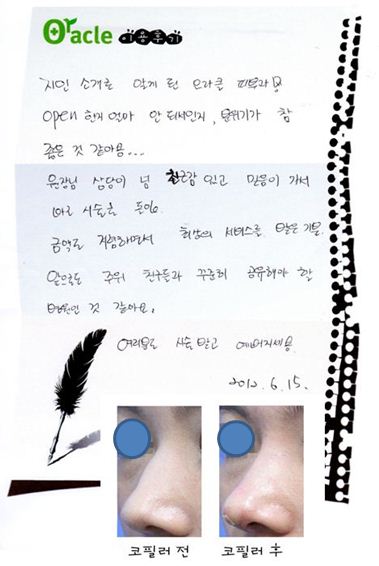 Oracle 이용후기
지인 소개로 알게 된 오라클 피부과 ㅎ
open 한지 얼마 안 되서인지, 분위기가 참
좋은 것 같아용...
원장님 상담이 넘 친근감 있고 믿음이 가서
바로 시술을 했어용.
금액도 저렴하면서 최상의 서비스를 받은 기분.
앞으로도 주위 친구들과 꾸준히 공유해야 할
병원인 것 같아요.
여러분도 시술 받고 예뻐지세용.
2012. 6. 15.
코필러 전 코필러 후